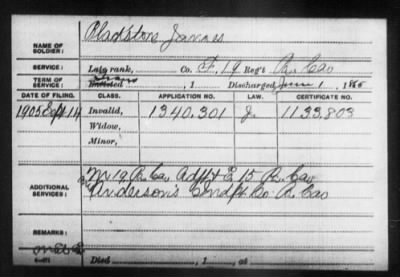 Gladstone James
NAME OF SOLDIER:
SERVICE: Late rank, Co. F, 19 Reg't Pa. Cav
TERM OF SERVICE: Enlisted , 1 Discharged June 1, 1865
DATE OF FILING. CLASS. APPLICATION NO. LAW. CERTIFICATE NO.
1905 Sept 14 Invalid, 1340.301 J. 1133.803
Widow,
Minor,
ADDITIONAL SERVICES: M 19 Pa. Cav Adjt E 15 Pa. Cav
Anderson's Indpt Co. Pa Cav
REMARKS:
Died , 1 , at